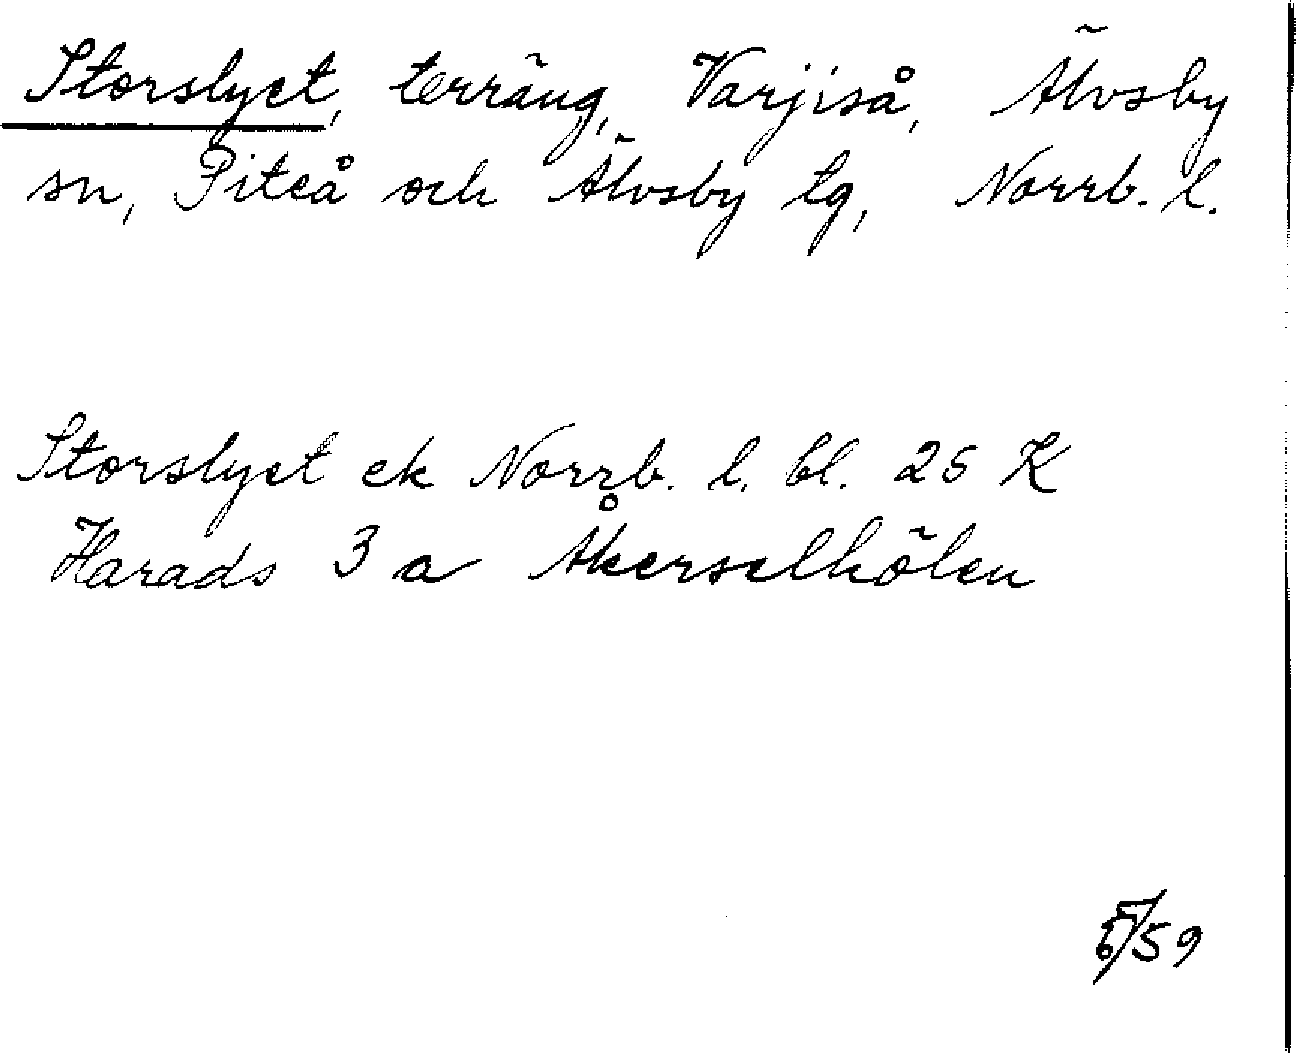 Storslyet, terräng, Varjiså, Älvsby
sn, Piteå och Älvsby tg, Norrb. l.
Storslyet ek Norrb. l. bl. 25 K
Harads 3 a Åkerselhölen
/59